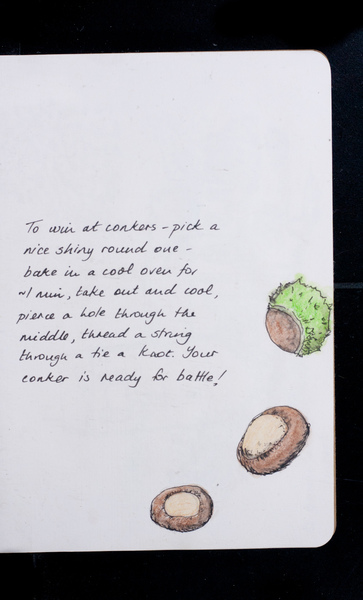 To win at conkers - pick a
nice shiny round one -
bake in a cool oven for
~1 min, take out and cool,
pierce a hole through the
middle, thread a string
through & tie a knot. Your
conker is ready for battle!